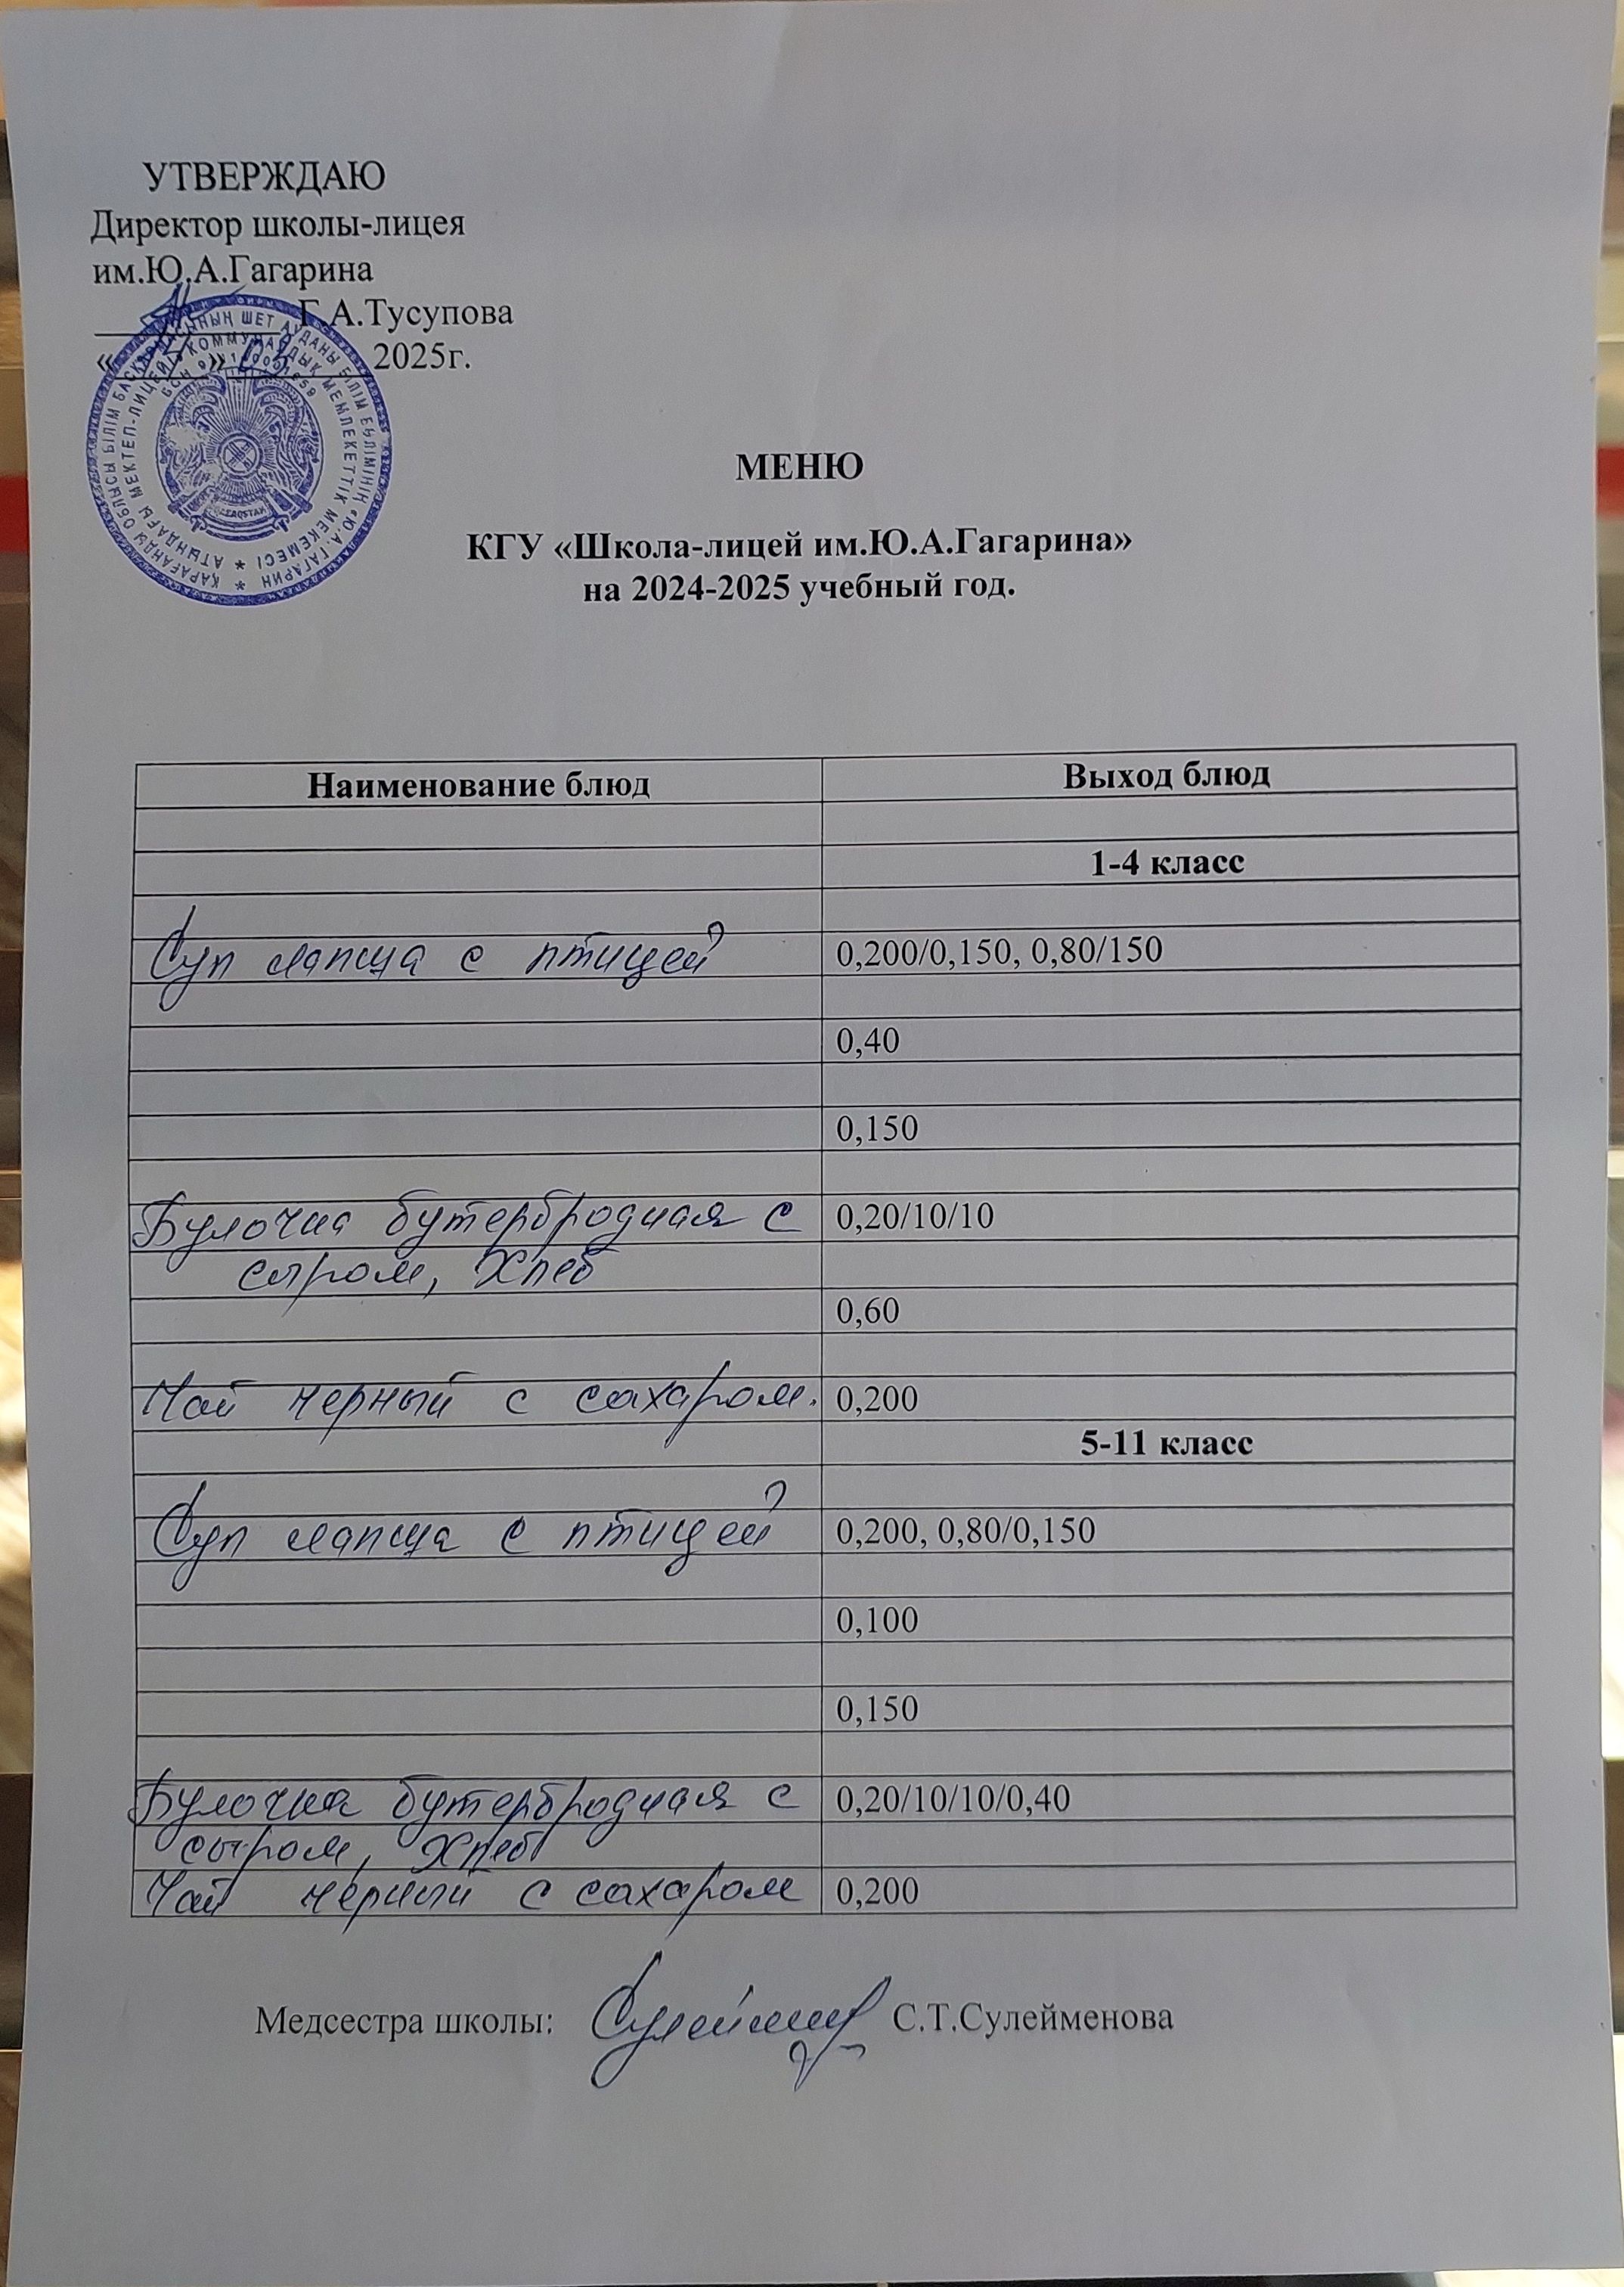 УТВЕРЖДАЮ
Директор школы-лицея
им.Ю.А.Гагарина
Г.А.Тусупова
« » 03 2025г.
ҚАРАҒАНДЫ ОБЛЫСЫ БІЛІМ БАСҚАРМАСЫНЫҢ ШЕТ АУДАНЫ БІЛІМ БӨЛІМІНІҢ «Ю.А. ГАГАРИН
АТЫНДАҒЫ МЕКТЕП-ЛИЦЕЙІ» КОММУНАЛДЫҚ МЕМЛЕКЕТТІК МЕКЕМЕСІ
МЕНЮ
КГУ «Школа-лицей им.Ю.А.Гагарина»
на 2024-2025 учебный год.
Наименование блюд Выход блюд
1-4 класс
Суп лапша с птицей 0,200/0,150, 0,80/150
0,40
0,150
Булочка бутербродная с 0,20/10/10
сыром, Хлеб
0,60
Чай черный с сахаром. 0,200
5-11 класс
Суп лапша с птицей 0,200, 0,80/0,150
0,100
0,150
Булочка бутербродная с 0,20/10/10/0,40
сыром, Хлеб
Чай черный с сахаром 0,200
Медсестра школы: С.Т.Сулейменова